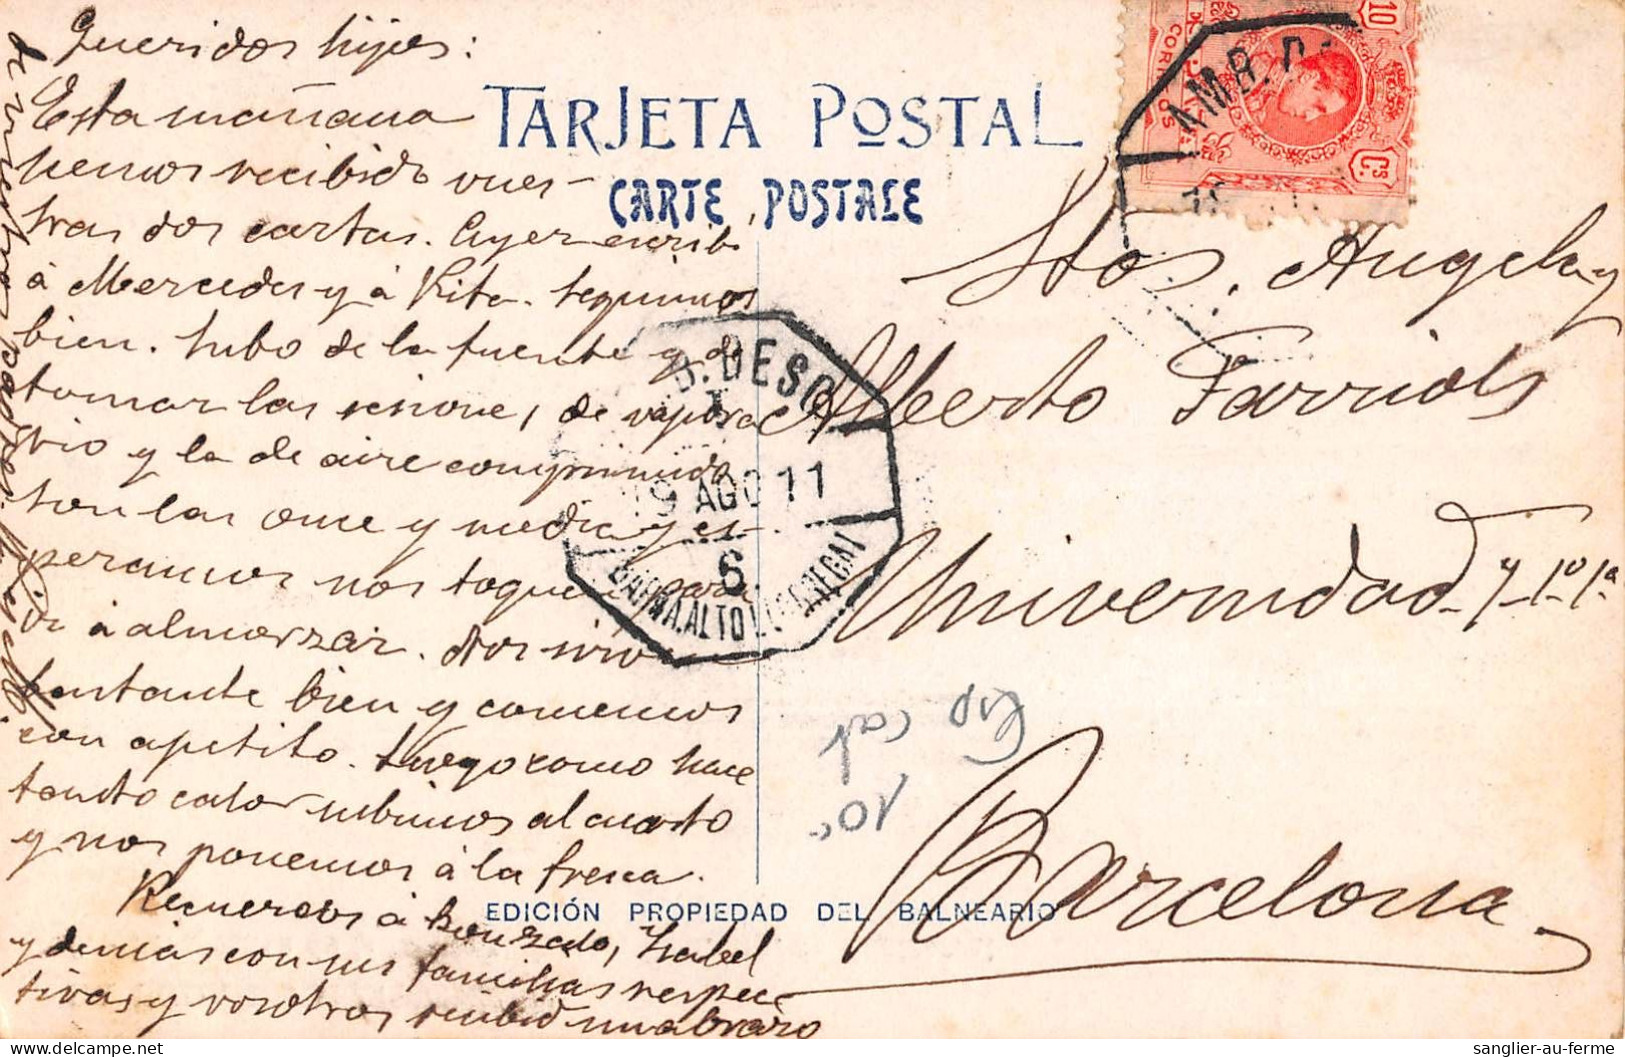 Queridos hijos:
Esta mañana
hemos recibido vues-
tras dos cartas. Ayer escribí
á Mercedes y á Rita. Seguimos
bien. Subo de la fuente y de
tomar las sesiones, de vapora
rio y la de aire comprimido
son las once y media y es-
peramos nos toquen para
ir á almorzar. Nos sirven
bastante bien y comemos
con apetito. Luego como hace
tanto calor subimos al cuarto
y nos ponemos á la fresca.
Recuerdos á Gonzalo, Isabel
y demás con sus familias respec
tivas y vosotros recibid un abrazo
de vuestros padres
TARJETA POSTAL
CARTE POSTALE
10
CORREOS
Cs
AMB. D
B. DESC
19 AGO 11
6.
BARNA. ALTO LLOBREGAT
Stos. Angela y
Alberto Farriols
Universidad 7-1º-1ª
Barcelona
Esp cat
10€
EDICIÓN PROPIEDAD DEL BALNEARIO
sanglier-au-ferme